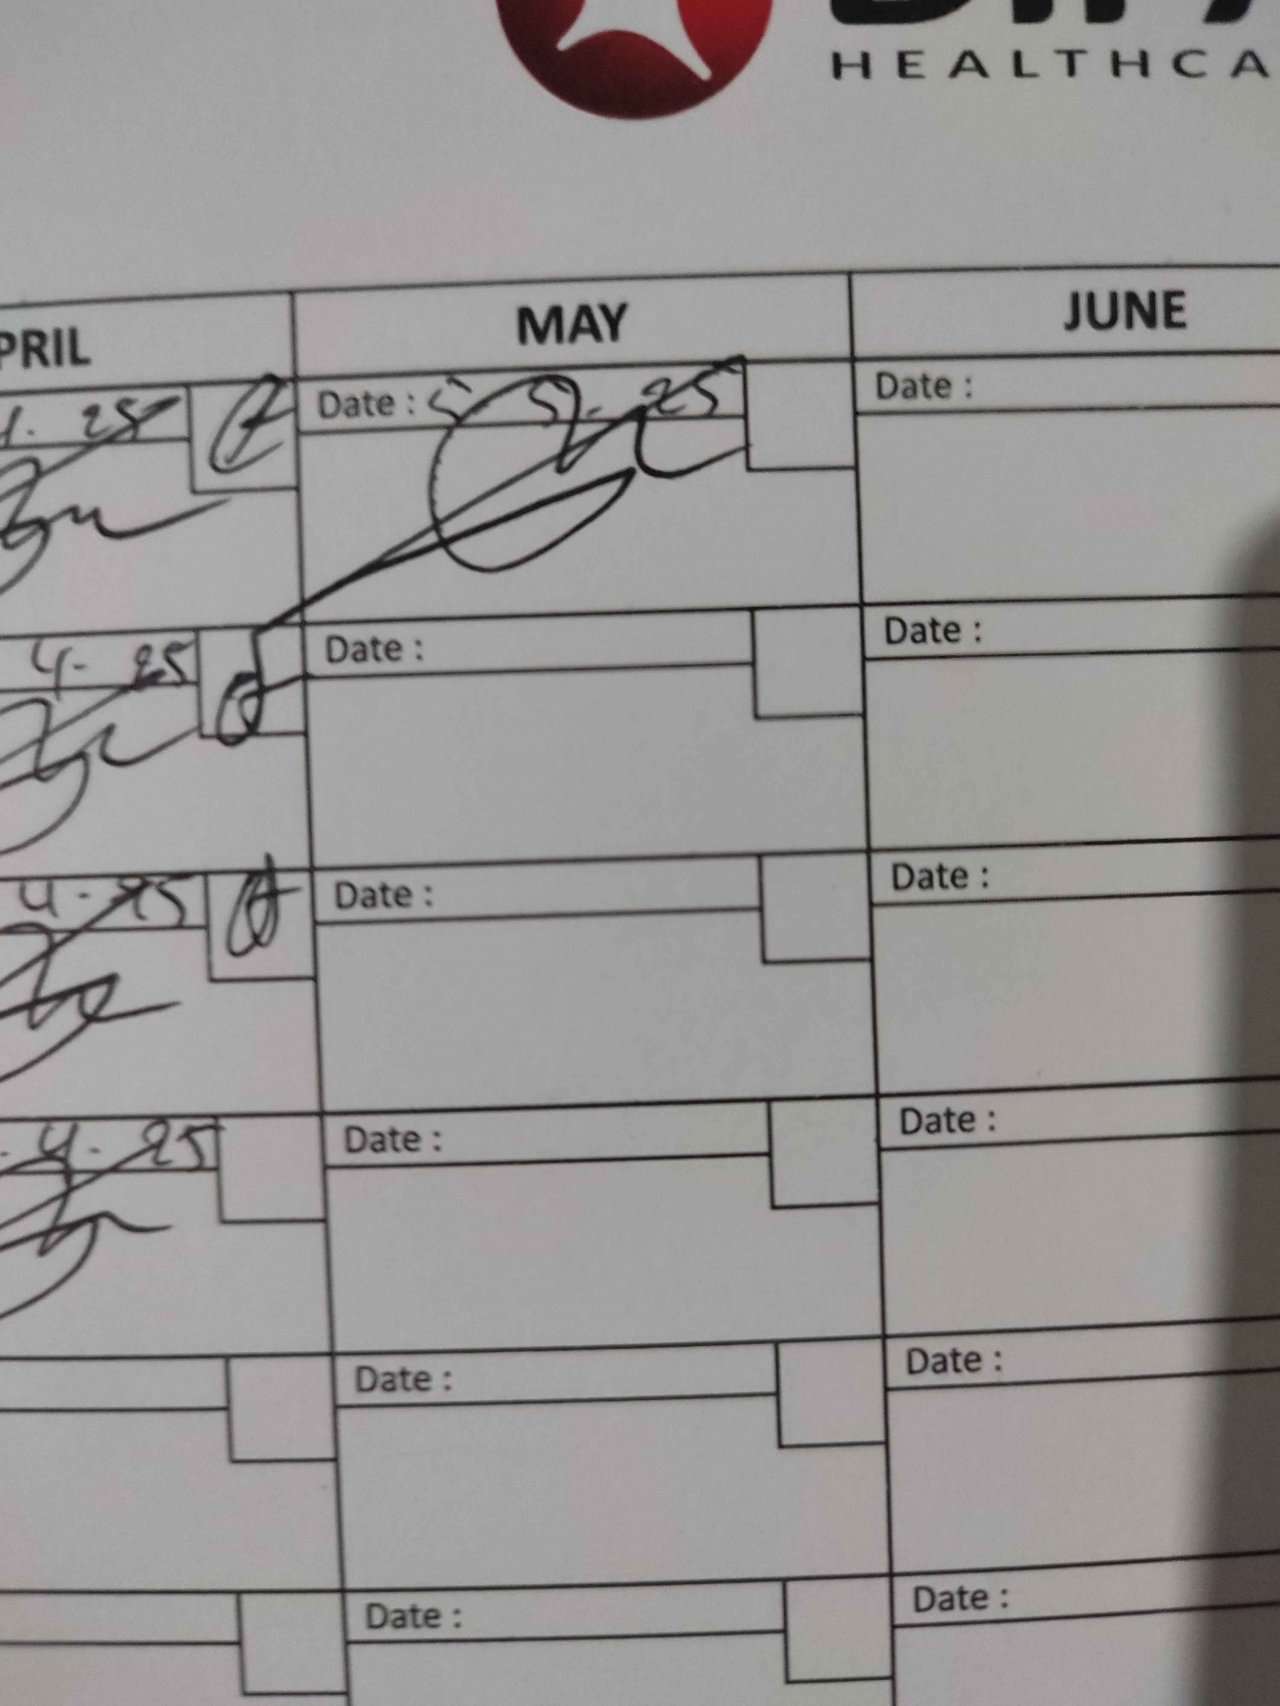 HEALTHCA
PRIL MAY JUNE
4. 25 Date : 5 5. 25 Date :
4. 25 Date : Date :
4. 25 Date : Date :
. 4. 25 Date : Date :
Date : Date :
Date : Date :